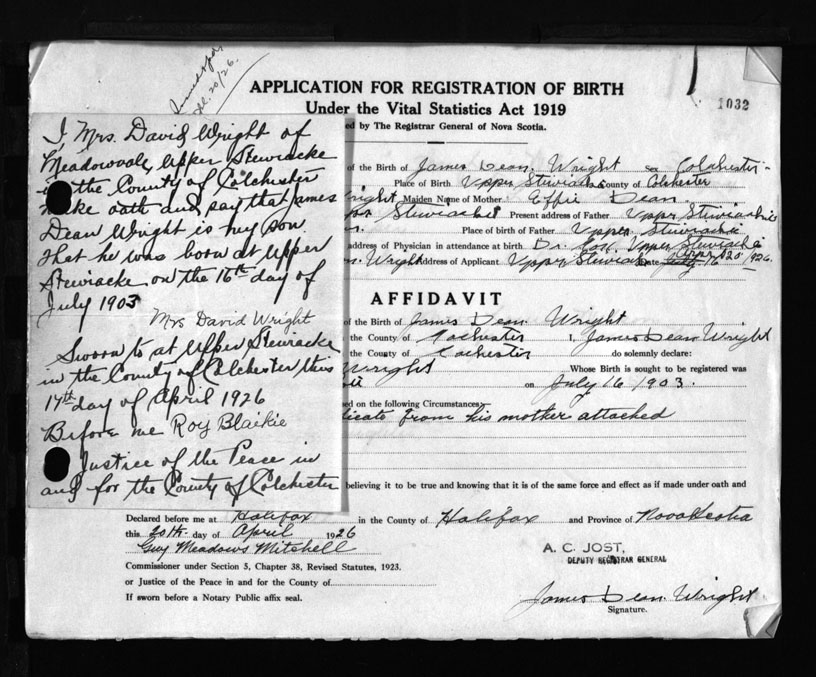 APPLICATION FOR REGISTRATION OF BIRTH
Under the Vital Statistics Act 1919
ed by The Registrar General of Nova Scotia.
1032
I, Mrs. David Wright of
Meadowvale, Upper Stewiacke
the County of Colchester
make oath and say that James
Dean Wright is my son
that he was born at Upper
Stewiacke on the 16th day of
July 1903
Mrs David Wright
Sworn to at Upper Stewiacke
in the County of Colchester this
17th day of April 1926
Before me Roy Blaikie
Justice of the Peace in
and for the County of Colchester
of the Birth of James Dean Wright Colchester
Place of Birth Upper Stewiacke County of Colchester
Wright Maiden Name of Mother Effie Dean
Stewiacke Present address of Father Upper Stewiacke
Place of birth of Father Upper Stewiacke
address of Physician in attendance at birth Dr. Cox, Upper Stewiacke
Wright Address of Applicant Upper Stewiacke Date 20 1926
AFFIDAVIT
of the Birth of James Dean Wright
the County of Colchester I, James Dean Wright
the County of Colchester do solemnly declare:
Wright Whose Birth is sought to be registered was
on July 16 1903.
ed on the following Circumstances
from his mother attached
believing it to be true and knowing that it is of the same force and effect as if made under oath and
Declared before me at Halifax in the County of Halifax and Province of Nova Scotia
this 20th day of April 1926
Guy Meadows Mitchell
Commissioner under Section 5, Chapter 38, Revised Statutes, 1923.
or Justice of the Peace in and for the County of
If sworn before a Notary Public affix seal.
A. C. JOST,
DEPUTY REGISTRAR GENERAL
James Dean Wright
Signature.